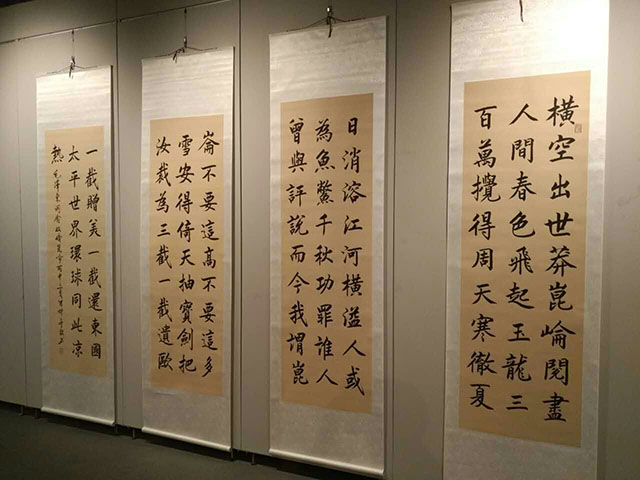 橫空出世莽崑崘閱盡
人間春色飛起玉龍三
百萬攪得周天寒徹夏
日消溶江河橫溢人或
為魚鱉千秋功罪誰人
曾與評說而今我謂崑
崙不要這高不要這多
雪安得倚天抽寶劍把
汝裁為三截一截遺歐
一截贈美一截還東國
太平世界環球同此凉
熱 毛澤東詞念奴嬌